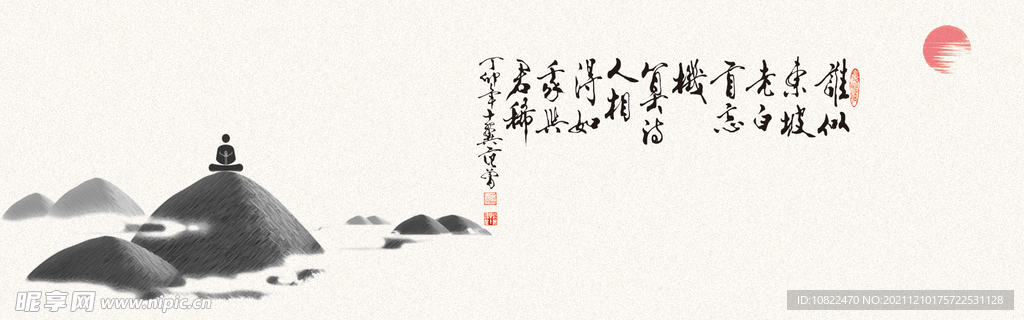 誰似
東坡
老白
首忘
機
算詩
人相
得如
我與
君稀
丁卯年十翼范曾
昵享网 www.nipic.cn
ID:10822470 NO:20211210175722531128